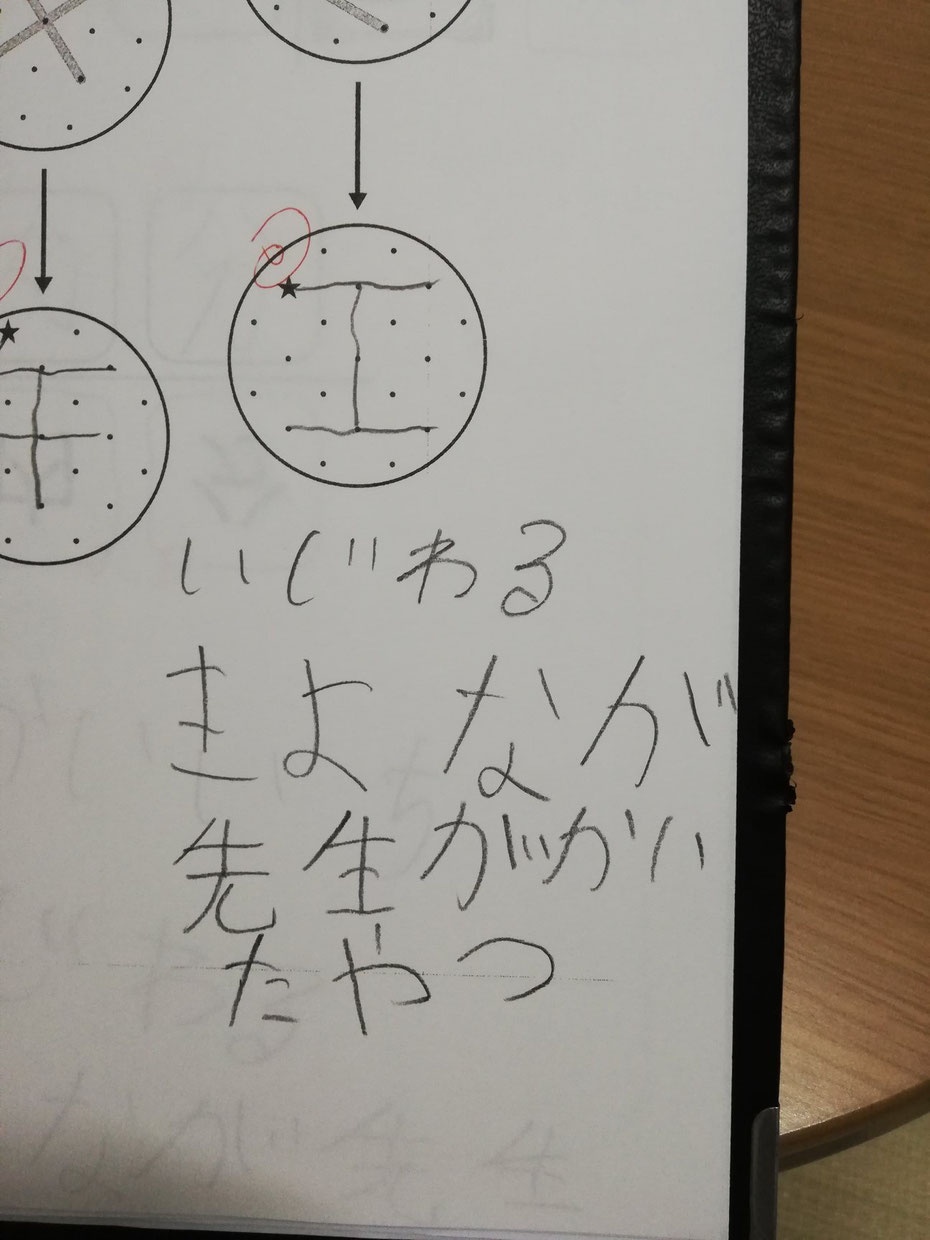 いじわる
きよなが
先生がかい
たやつ